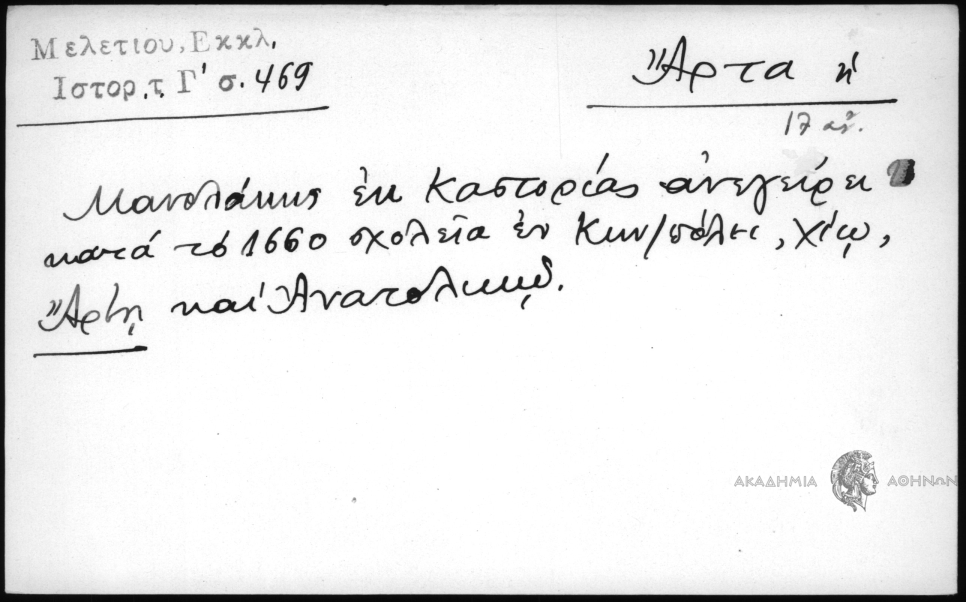 Μελετίου, Εκκλ.
Ιστορ. τ. Γ' σ. 469
Ἄρτα ἡ
17 αἰ.
Μανολάκης ἐκ Καστορίας ἀνεγείρει
κατά τό 1660 σχολεῖα ἐν Κων/πόλει, Χίῳ,
Ἄρτῃ καί Ἀνατολικῷ.
ΑΚΑΔΗΜΙΑ ΑΘΗΝΩΝ